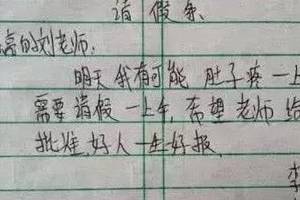 请假条
的刘老师:
明天我有可能肚子疼一上
需要请假一上午,希望老师给
批准,好人一生好报,
李